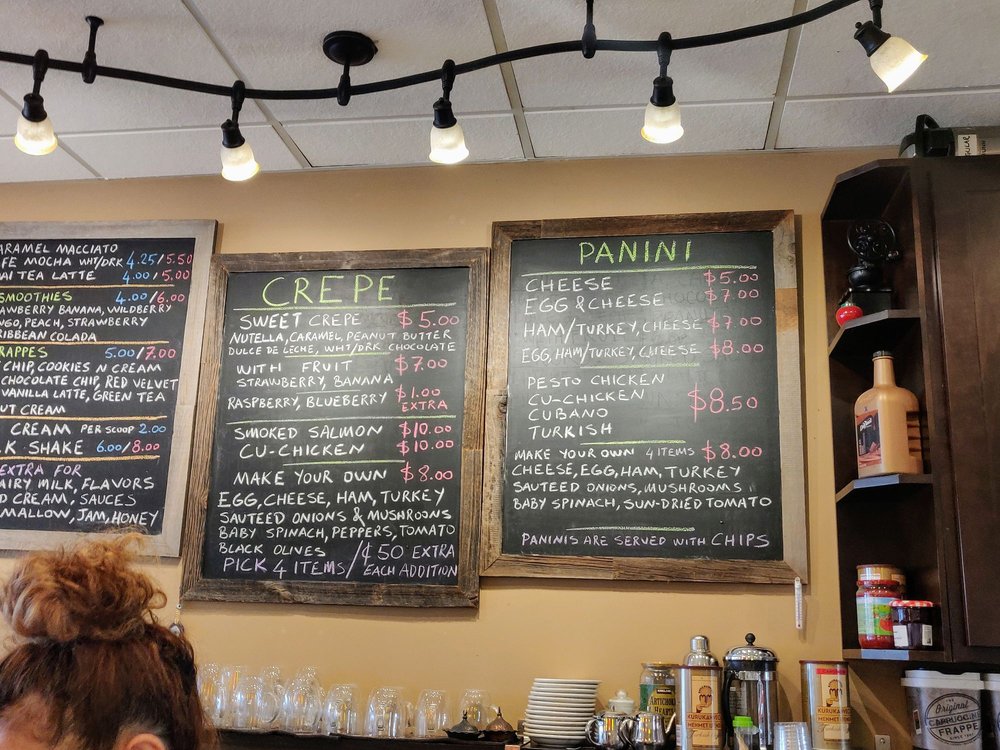 MACCIATO
MOCHA WHT/DRK 4.25/5.50
TEA LATTE 4.00/5.00
SMOOTHIES 4.00/6.00
BANANA, WILDBERRY
PEACH, STRAWBERRY
COLADA
5.00/7.00
CHIP, COOKIES N CREAM
CHOCOLATE CHIP, RED VELVET
VANILLA LATTE, GREEN TEA
CREAM
CREAM PER SCOOP 2.00
SHAKE 6.00/8.00
EXTRA FOR
MILK, FLAVORS
CREAM, SAUCES
JAM, HONEY
CREPE
SWEET CREPE $5.00
NUTELLA, CARAMEL, PEANUT BUTTER
DULCE DE LECHE, WHT/DRK CHOCOLATE
WITH FRUIT $7.00
STRAWBERRY, BANANA
RASPBERRY, BLUEBERRY $1.00
EXTRA
SMOKED SALMON $10.00
CU-CHICKEN $10.00
MAKE YOUR OWN $8.00
EGG, CHEESE, HAM, TURKEY
SAUTEED ONIONS & MUSHROOMS
BABY SPINACH, PEPPERS, TOMATO
BLACK OLIVES
PICK 4 ITEMS/¢50 EXTRA
EACH ADDITION
PANINI
CHEESE $5.00
EGG & CHEESE $7.00
HAM/TURKEY, CHEESE $7.00
EGG, HAM/TURKEY, CHEESE $8.00
PESTO CHICKEN
CU-CHICKEN
CUBANO $8.50
TURKISH
MAKE YOUR OWN 4 ITEMS $8.00
CHEESE, EGG, HAM, TURKEY
SAUTEED ONIONS, MUSHROOMS
BABY SPINACH, SUN-DRIED TOMATO
PANINIS ARE SERVED WITH CHIPS
KURUKAHVECİ
MEHMET
Original
CAPPUCCINO
FRAPPE